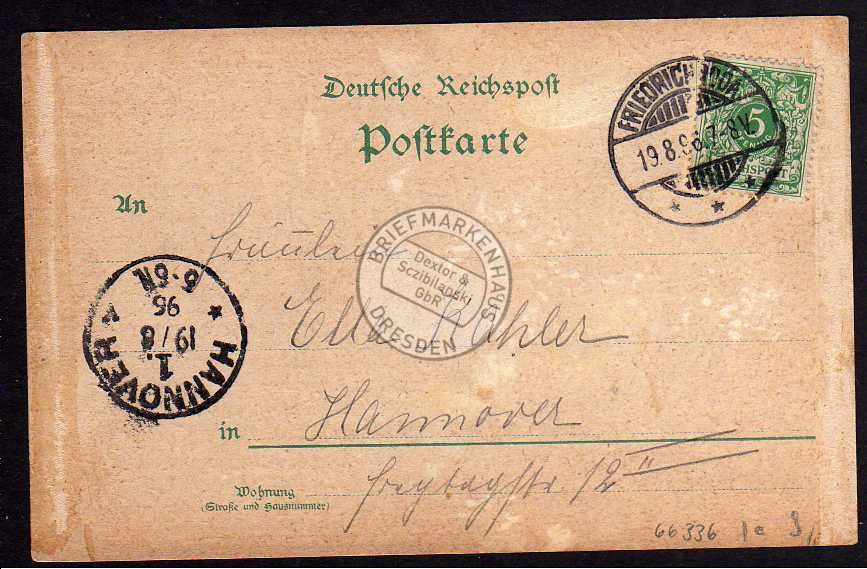 Deutsche Reichspost
Postkarte
FRIEDRICHRODA
19.8.96.7-8V.
5
An
Fräulein
BRIEFMARKENHAUS
Dextor &
Sczibilanski
GbR
DRESDEN
Ella Köhler
HANNOVER
1.
19/8
96
5-6N
in Hannover
Wohnung
(Straße und Hausnummer)
Freytagstr. 12 II
66336